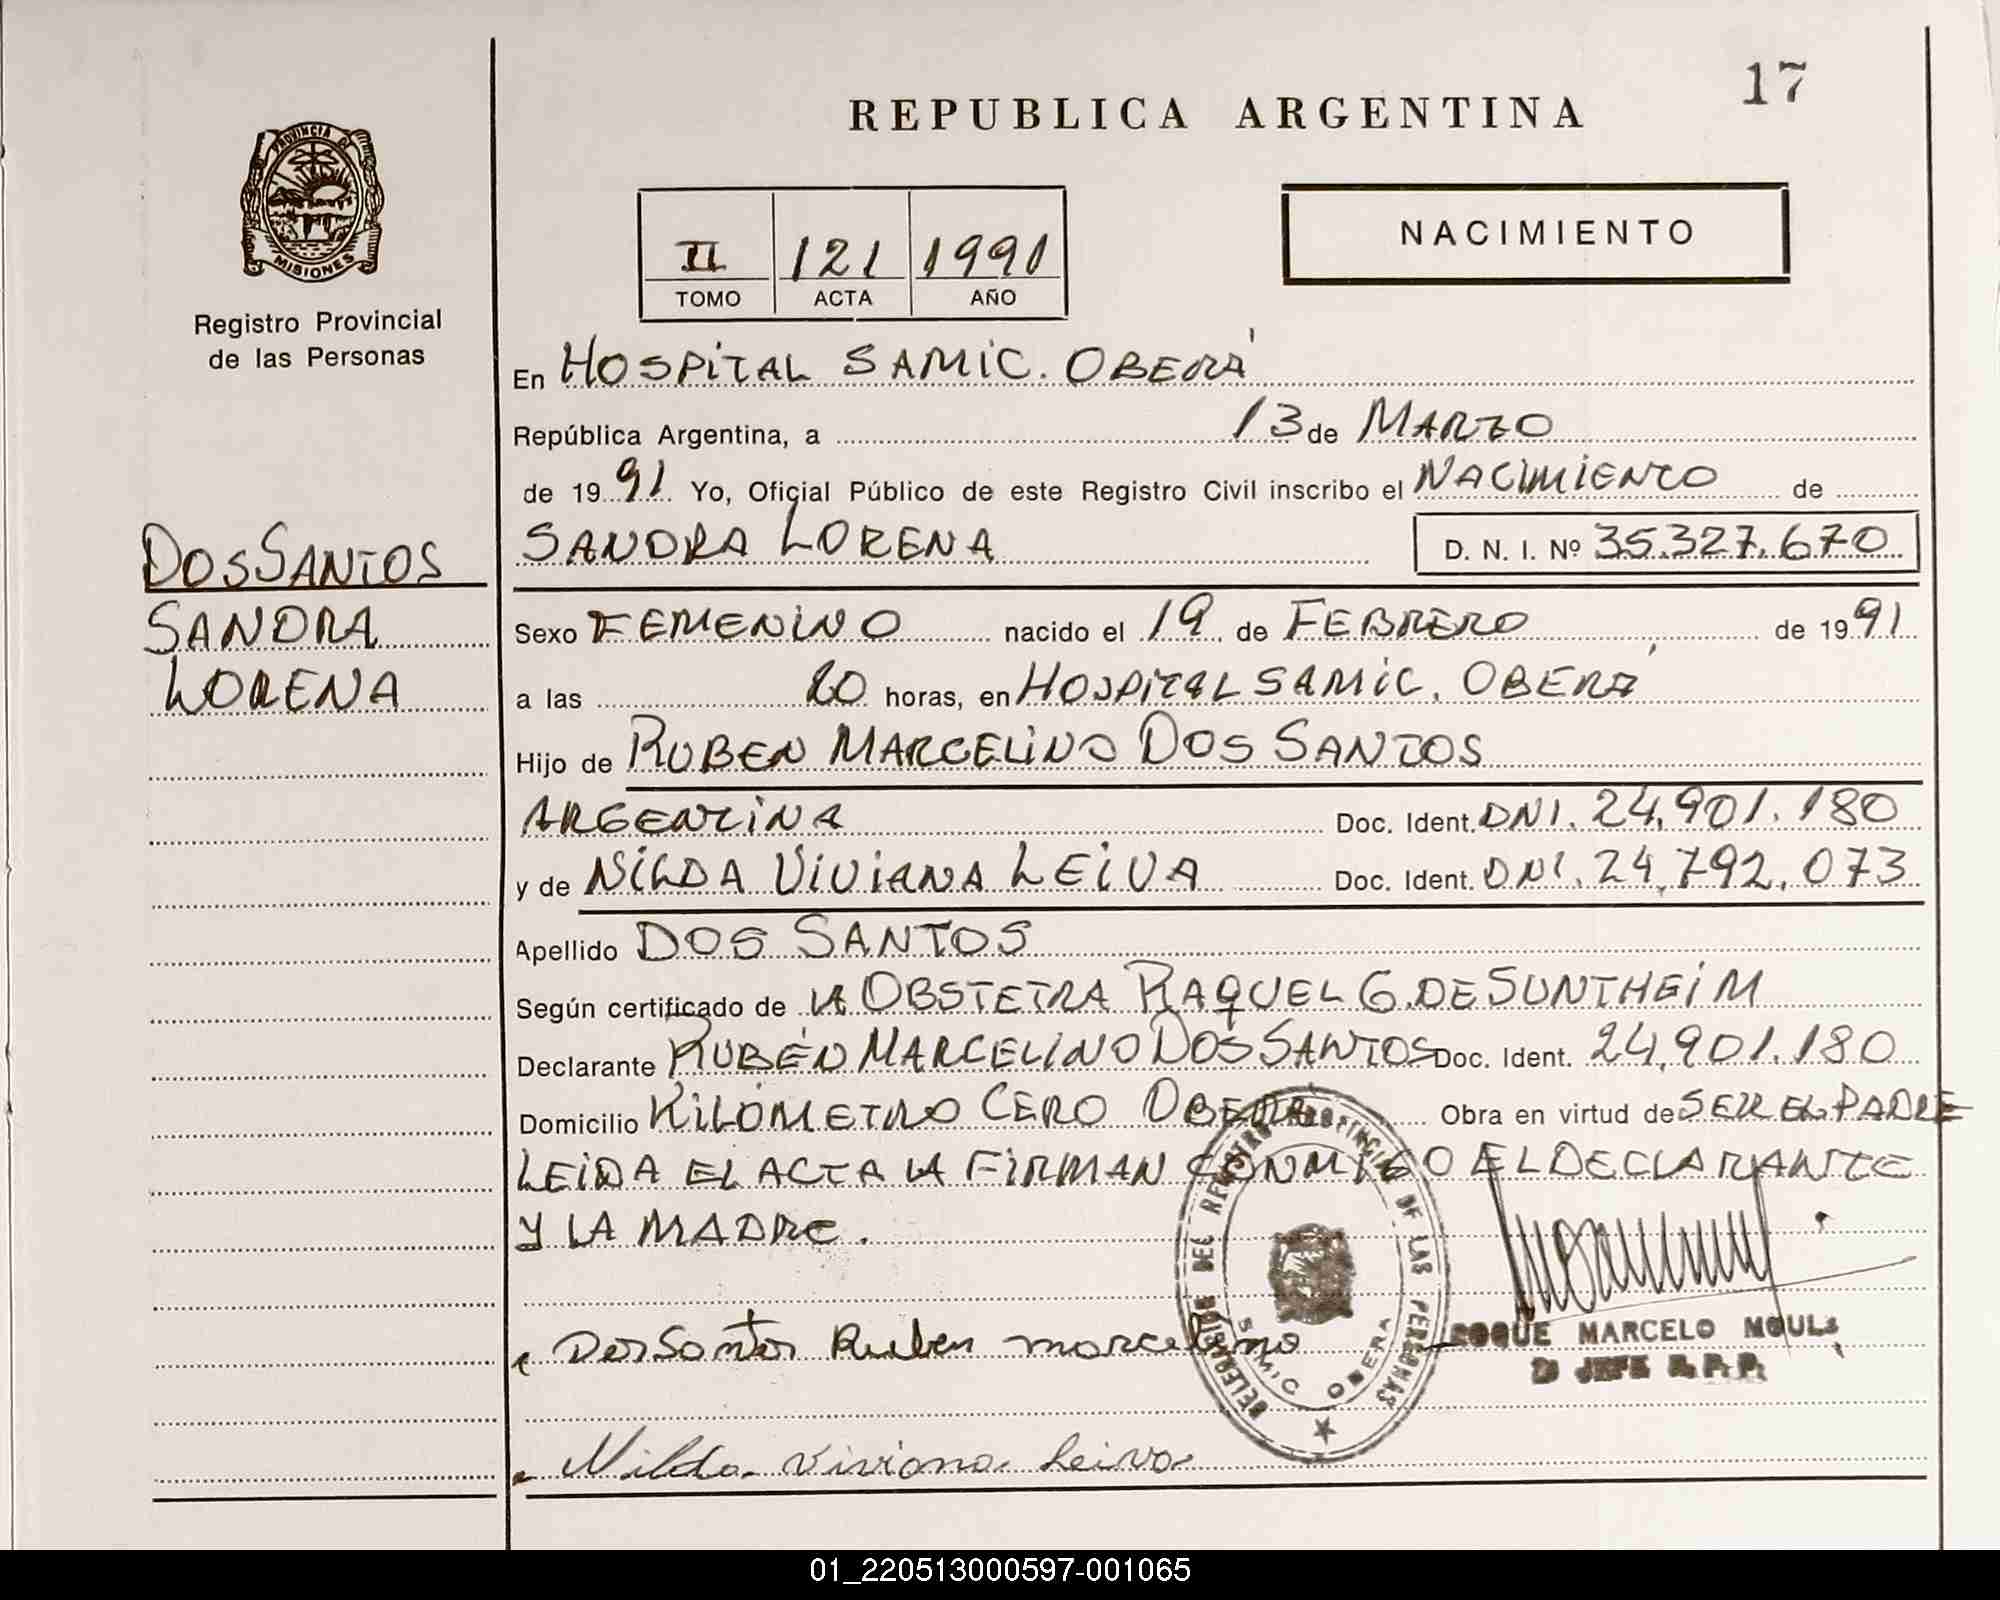 17
REPUBLICA ARGENTINA
PROVINCIA DE
MISIONES
Registro Provincial
de las Personas
II 121 1991
TOMO ACTA AÑO
NACIMIENTO
En HOSPITAL SAMIC. OBERÁ
República Argentina, a 13 de MARZO
de 1991 Yo, Oficial Público de este Registro Civil inscribo el NACIMIENTO de
SANDRA LORENA D. N. I. Nº 35.327.670
DOS SANTOS
SANDRA
LORENA
Sexo FEMENINO nacido el 19 de FEBRERO de 1991
a las 20 horas, en HOSPITAL SAMIC. OBERÁ
Hijo de RUBEN MARCELINO DOS SANTOS
ARGENTINA Doc. Ident. DNI. 24.901.180
y de NILDA VIVIANA LEIVA Doc. Ident. DNI. 24.792.073
Apellido DOS SANTOS
Según certificado de LA OBSTETRA RAQUEL G. DE SUNTHEIM
Declarante RUBÉN MARCELINO DOS SANTOS Doc. Ident. 24.901.180
Domicilio KILÓMETRO CERO OBERA Obra en virtud de SER EL PADRE
LEIDA EL ACTA LA FIRMAN CONMIGO EL DECLARANTE
Y LA MADRE.
DELEGACION DEL REGISTRO PROVINCIAL DE LAS PERSONAS
SAMIC OBERA
Dos Santos Ruben marcelino
ROQUE MARCELO MOULS
JEFE R.P.P.
Nilda Viviana Leiva
01_220513000597-001065